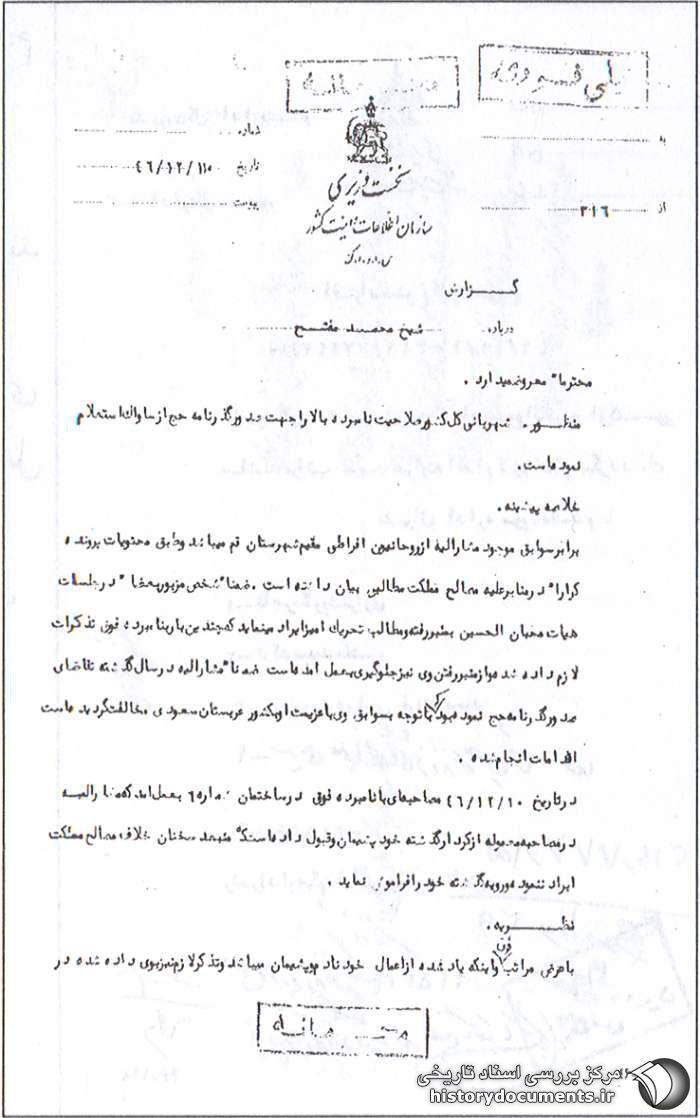 خیلی محرمانه
به
شماره
تاریخ ۴۶/۱۲/۱۱۰
پیوست
از ۳۱۶
نخست وزیری
سازمان اطلاعات و امنیت کشور
س.ا.و.ا.ک
گزارش
درباره شیخ محمد مفتح
محترما" معروضمیدارد.
منظور. شهربانی کل کشور صلاحیت نامبرده بالا را جهت صدور گذرنامه حج از ساواک استعلام
نموده است.
خلاصه پیشینه.
برابر سوابق موجود مشارالیه از روحانیون افراطی مقیم شهرستان قم میباشد و طبق محتویات پرونده
کرارا" در منابر علیه مصالح مملکت مطالبی بیان داشته است ضمنا" شخص مزبور بعضا" در جلسات
هیات محبان الحسین بمنبر رفته و مطالب تحریک امیز ایراد مینماید که چندین بار بنامبرده فوق تذکرات
لازم داده شده و از منبر رفتن وی نیز جلوگیری بعمل امده است ضمنا" مشارالیه در سال گذشته تقاضای
صدور گذرنامه حج نموده بود که با توجه بسوابق وی با عزیمت او بکشور عربستان سعودی مخالفت گردیده است
اقدامات انجام شده.
در تاریخ ۴۶/۱۲/۱۰ مصاحبه‌ای با نامبرده فوق در ساختمان شماره ۶ بعمل امد که مشارالیه
در مصاحبه معموله از کردار گذشته خود پشیمان و قبول داده است که منبعد سخنان خلاف مصالح مملکت
ایراد ننموده و رویه گذشته خود را فراموش نماید.
نظریه.
با عرض مراتب فوق و اینکه یاد شده از اعمال خود نادم و پشیمان میباشد و تذکر لازم نیز بوی داده شده در
محرمانه
مرکز بررسی اسناد تاریخی
historydocuments.ir